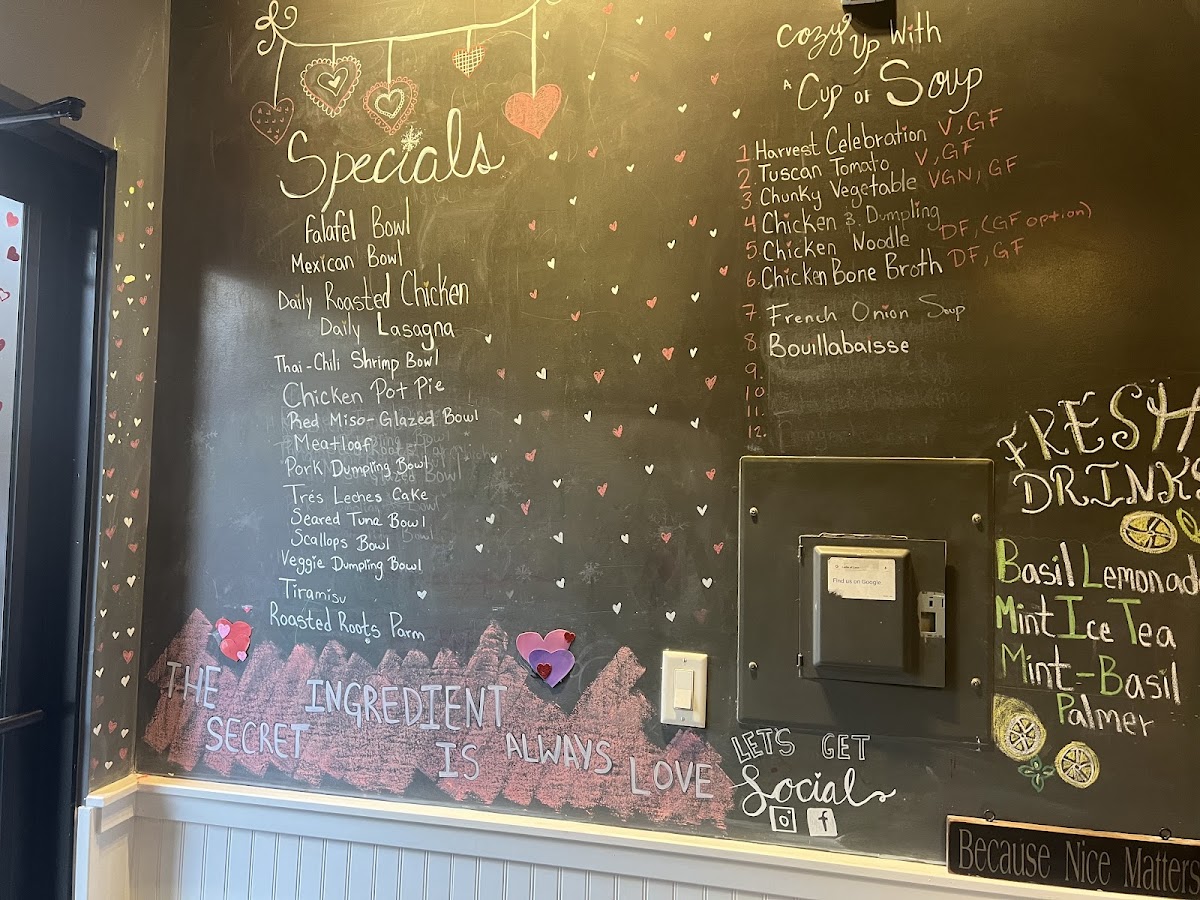 Specials
Falafel Bowl
Mexican Bowl
Daily Roasted Chicken
Daily Lasagna
Thai-Chili Shrimp Bowl
Chicken Pot Pie
Red Miso-Glazed Bowl
Meatloaf
Pork Dumpling Bowl
Trés Leches Cake
Seared Tuna Bowl
Scallops Bowl
Veggie Dumpling Bowl
Tiramisu
Roasted Roots Parm
THE
SECRET
INGREDIENT
IS ALWAYS LOVE
Cozy Up With
A Cup OF Soup
1 Harvest Celebration V, GF
2 Tuscan Tomato V, GF
3 Chunky Vegetable VGN, GF
4 Chicken & Dumpling
5. Chicken Noodle DF, (GF option)
6. Chicken Bone Broth DF, GF
7. French Onion Soup
8. Bouillabaisse
9.
10.
11.
12.
Find us on Google
LETS GET
Social
f
FRESH
DRINKS
Basil Lemonad
Mint Ice Tea
Mint-Basil
Palmer
Because Nice Matters